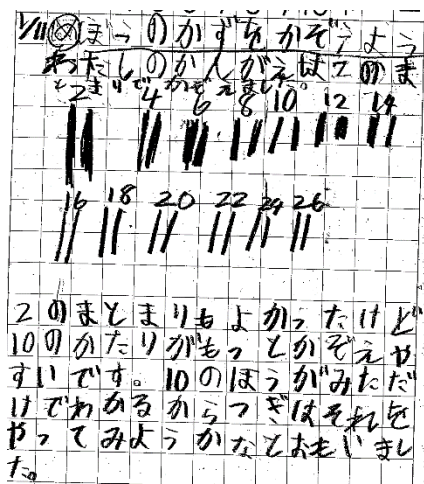 1/11 め ぼうのかずをかぞえよう
わたしのかんがえは2のま
とまりでかぞえました。
2 4 6 8 10 12 14
16 18 20 22 24 26
2のまとまりもよかったけど
10のかたまりがもっとかぞえや
すいです。10のほうがみただ
けでわかるからつぎはそれを
やってみようかなとおもいまし
た。